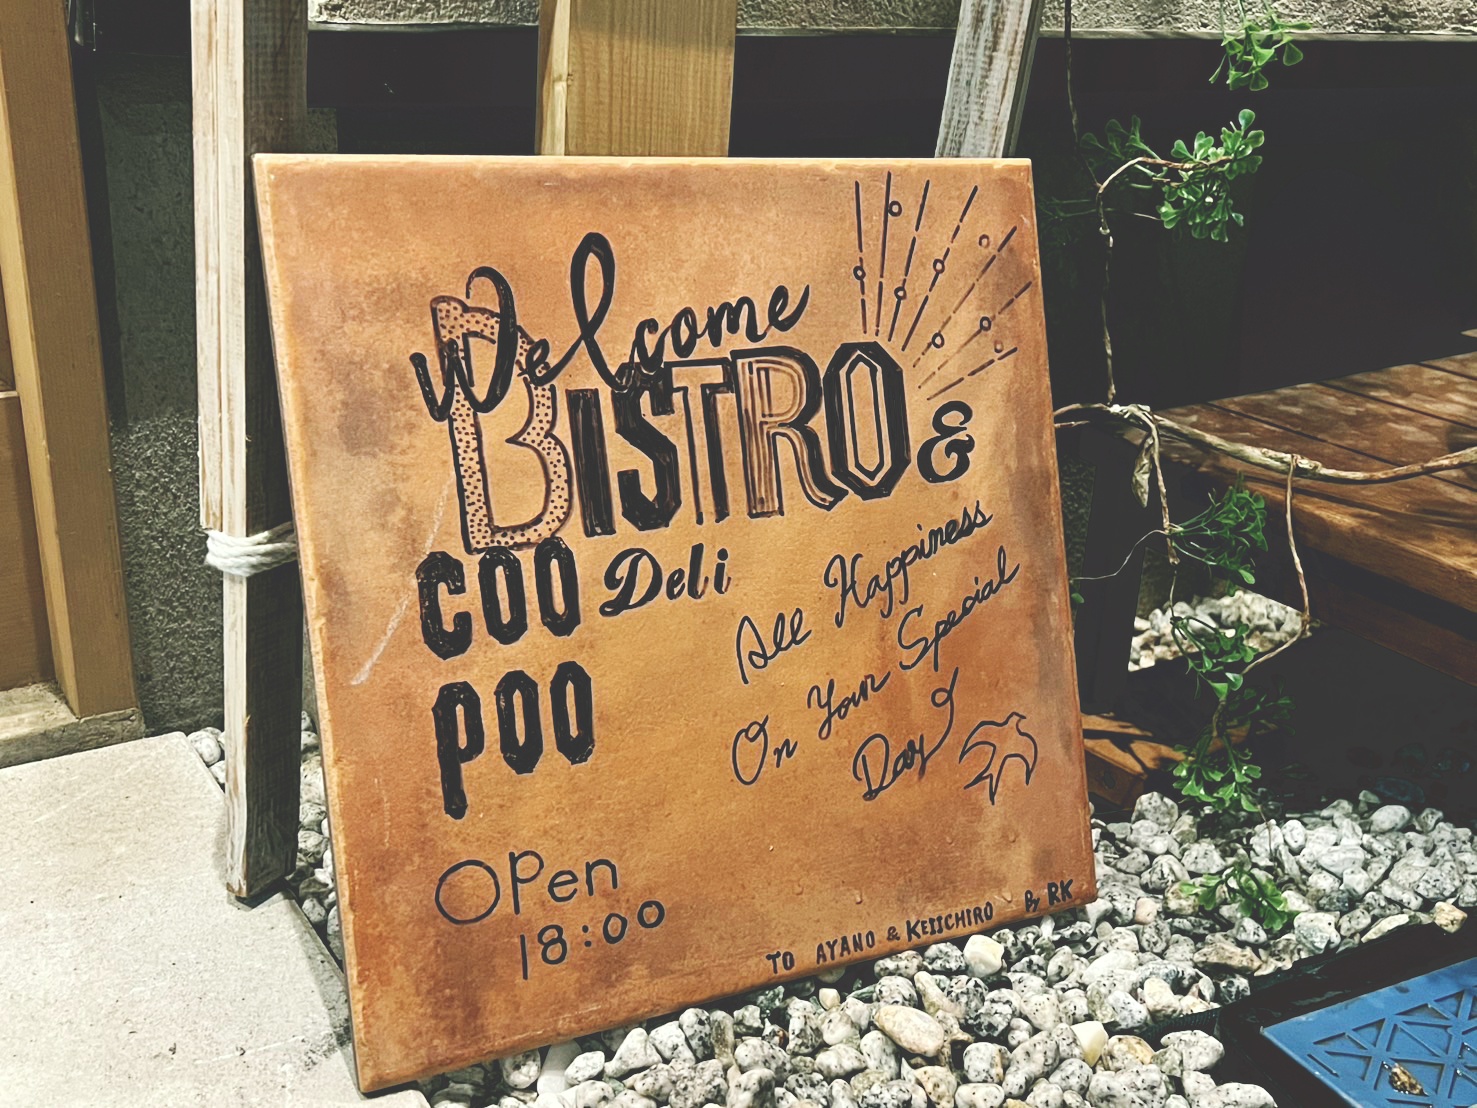 Welcome
BISTRO &
COO Deli
POO
All Happiness
On Your Special
Day
OPen
18:00
TO AYANO & KEIICHIRO By RK